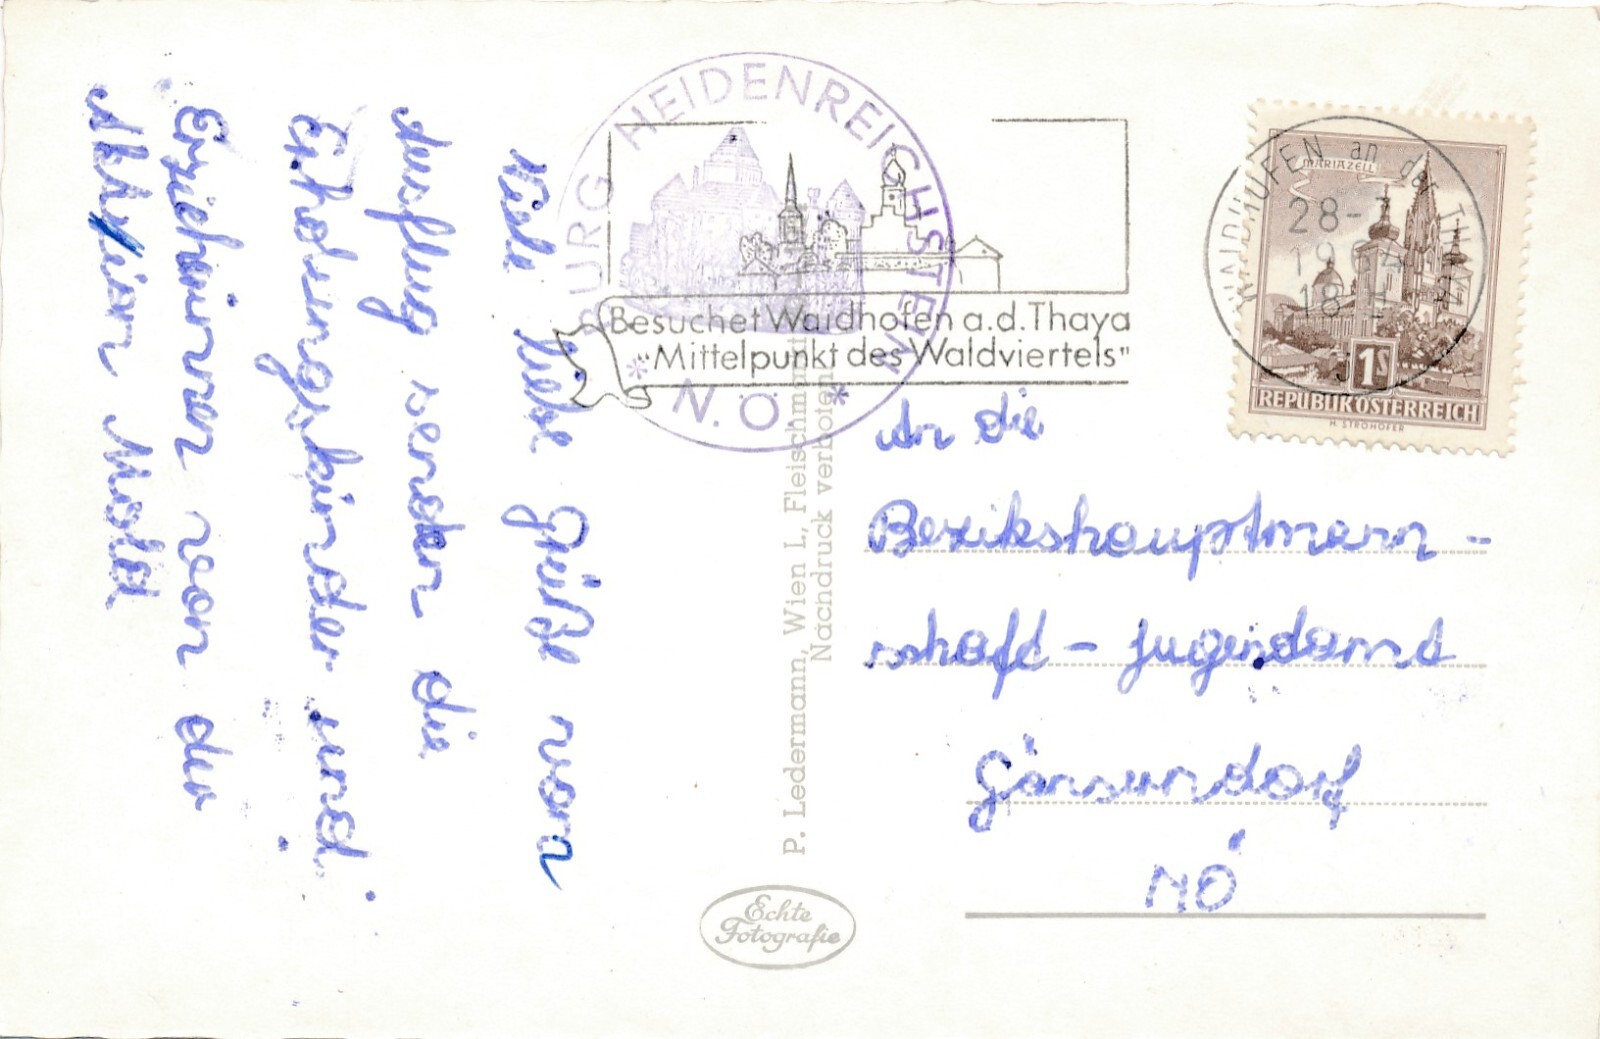 Viele liebe Grüße vom
Ausflug senden die
Erholungskinder und
Erzieherinnen von der
Aktion Mold
BURG HEIDENREICHSTEIN
* N.Ö. *
Besuchet Waidhofen a.d. Thaya
"Mittelpunkt des Waldviertels"
P. Ledermann, Wien I., Fleischmarkt
Nachdruck verboten
Echte
Fotografie
WAIDHOFEN an der THAYA
28-
18-
MARIAZELL
1S
REPUBLIK ÖSTERREICH
H. STROHOFER
An die
Bezikshauptmann-
schaft - Jugendamt
Gänserndorf
NÖ